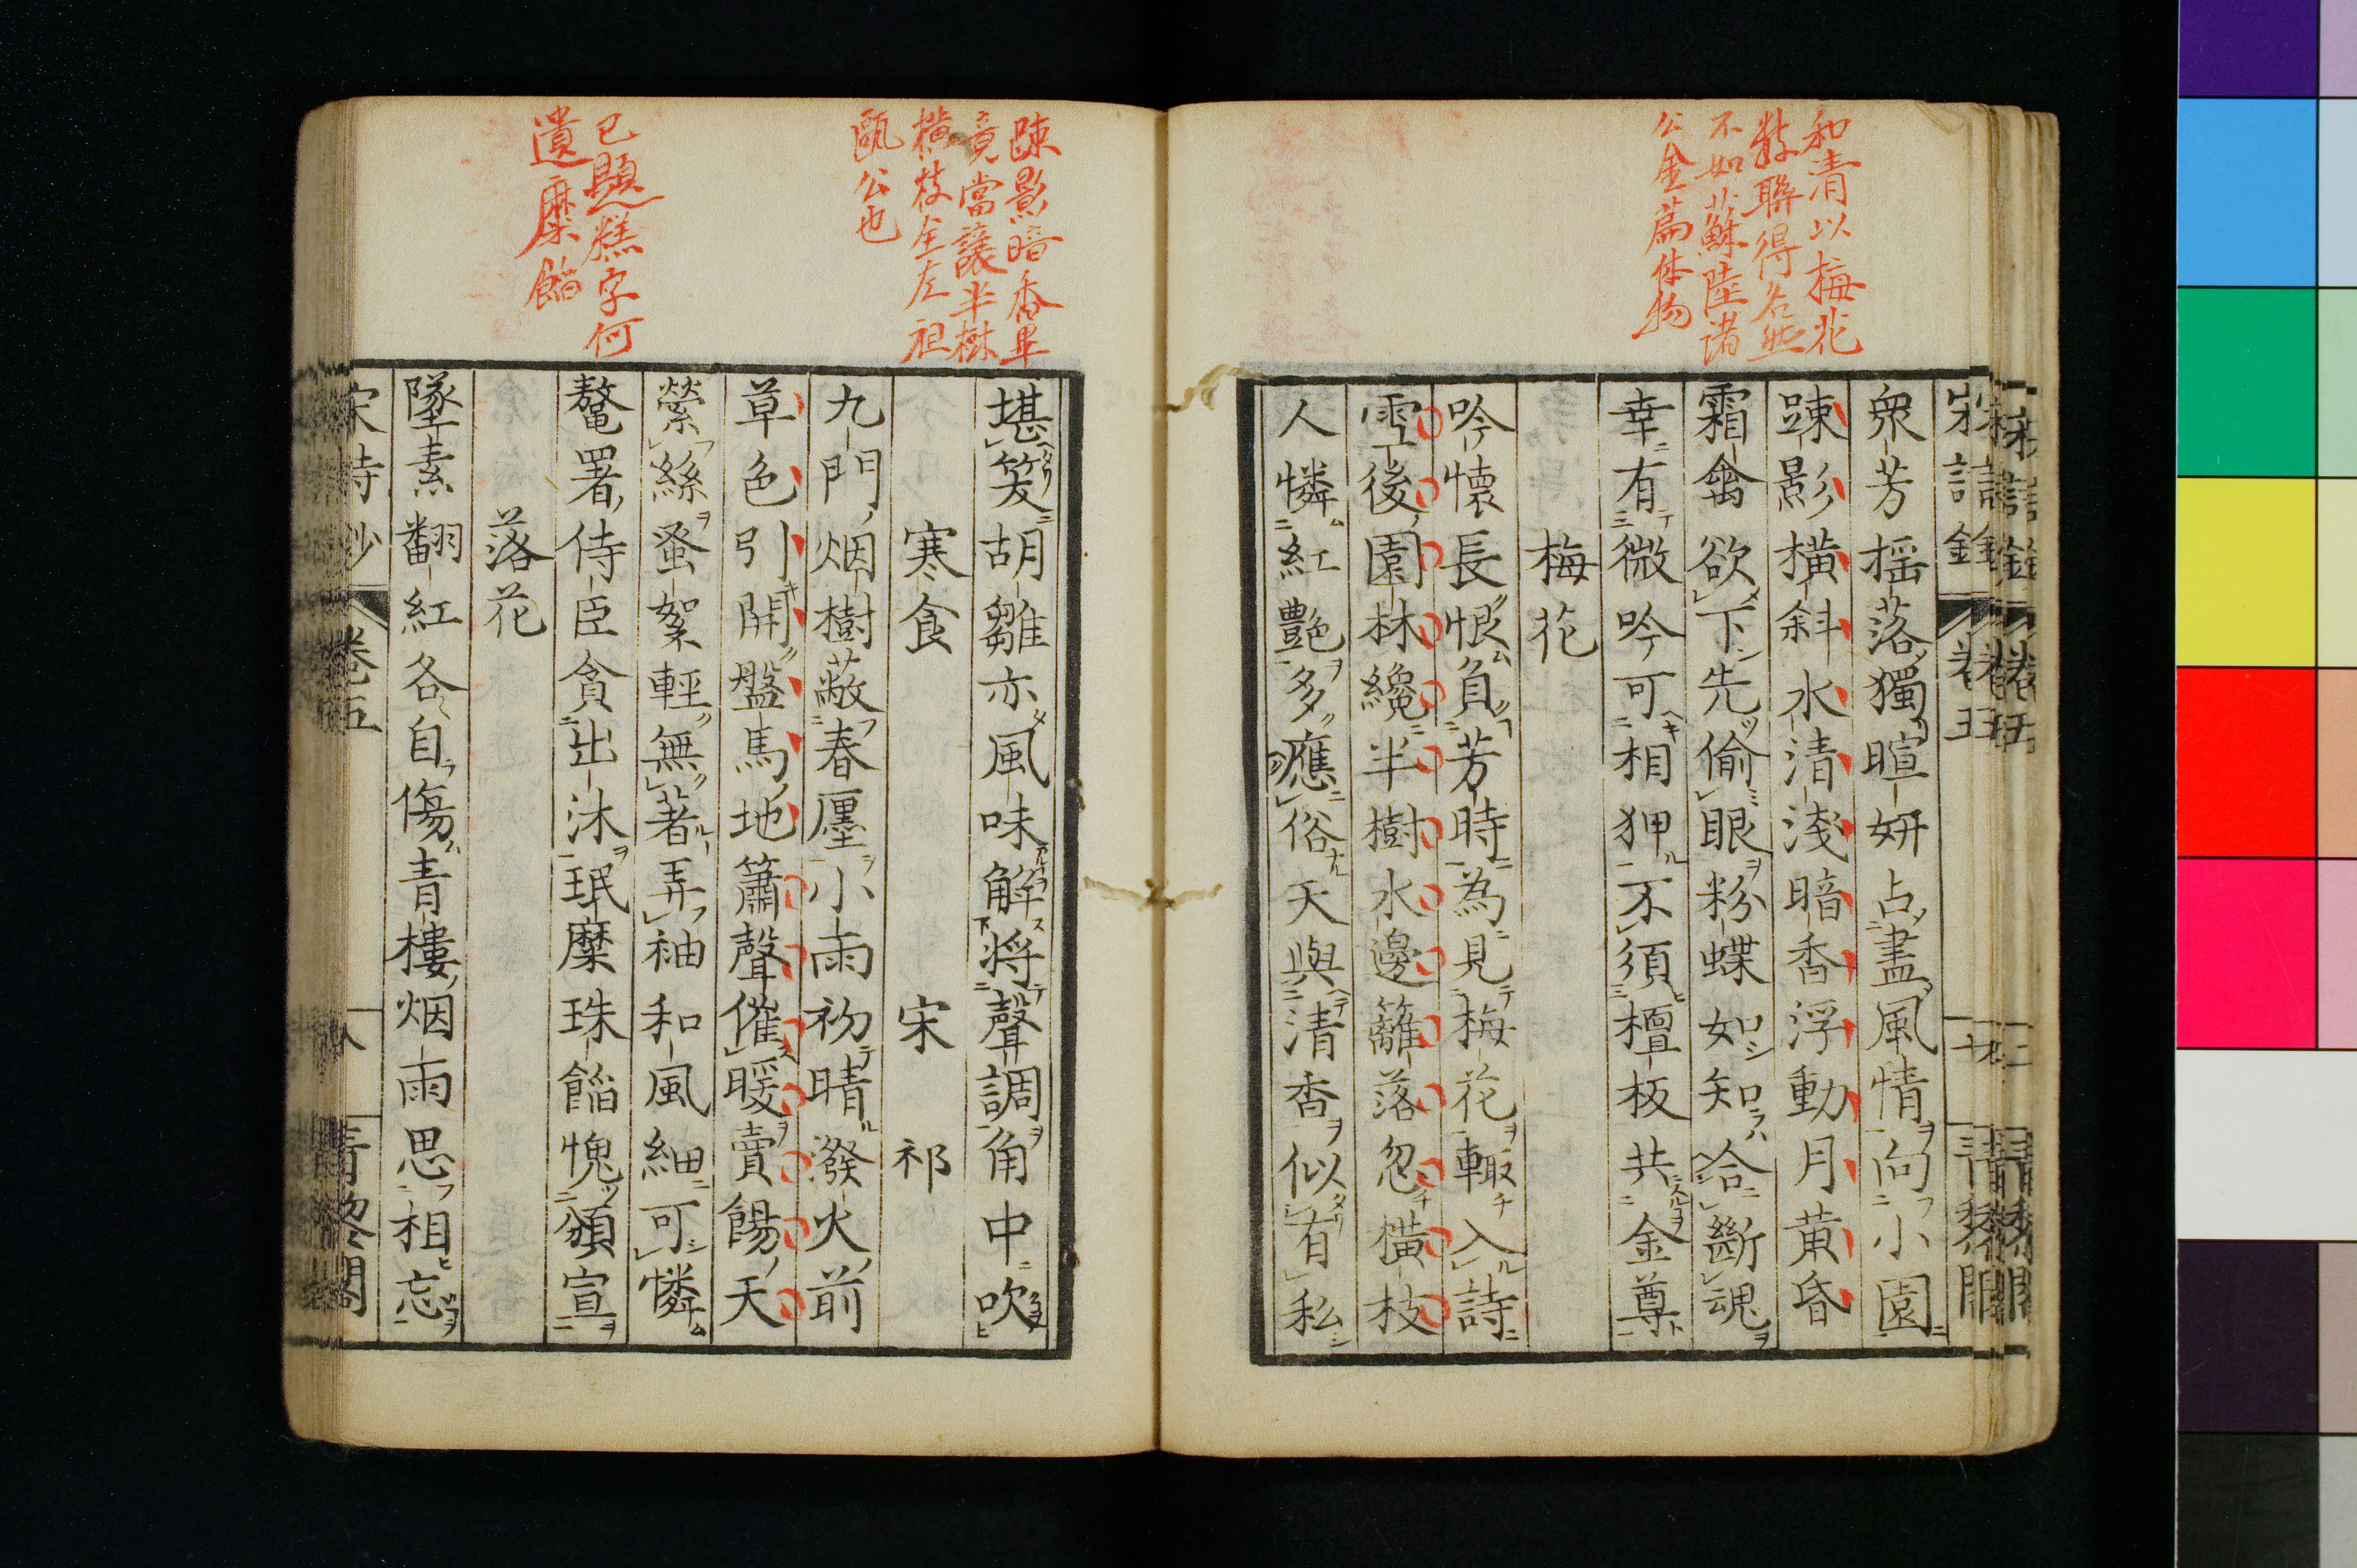 和清以梅花
数聯得名然
不如蘇陸諸
公全篇体物
衆芳揺落獨暄妍占盡風情向小園
踈影橫斜水清淺暗香浮動月黄昏
霜禽欲下先偷眼粉蝶如知合斷魂
幸有微吟可相狎不須檀板共金尊
梅花
吟懷長恨負芳時為見梅花輙入詩
雪後園林纔半樹水邊籬落忽橫枝
人憐紅艷多應俗天與清香似有私
踈影暗香畢
竟當讓半樹
横枝全左袒
甌公也
已題糕字何
遺糜餡
堪笑胡雛亦風味解将聲調角中吹
寒食 宋祁
九門烟樹蔽春廛小雨初晴潑火前
草色引開盤馬地簫聲催暖賣餳天
縈絲蚤絮輕無著弄袖和風細可憐
鼇署侍臣貪出沐珉糜珠餡愧頒宣
落花
墜素翻紅各自傷青樓烟雨思相忘
宋詩鈔 卷五